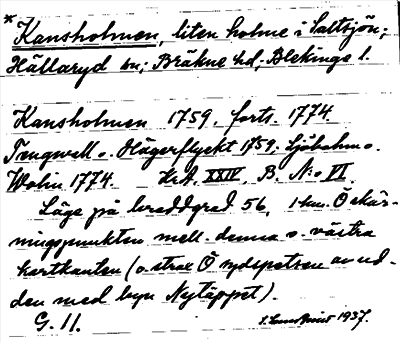 *Kansholmen, liten holme i Saltsjön;
Hällaryd sn; Bräkne hd; Blekinge l.
Kansholmen 1759, forts. 1774.
Trengwall o. Hägerflyckt 1759; Ljöbohm o.
Wohn 1774. Krt. XXIV. B. N:o VI.
Läge på breddgrad 56, 1 km. Ö skär-
ningspunkten mell. denna o. västra
kartkanten (o. strax Ö sydspetsen av ud-
den med byn Nytäppet).
G. 11.
1937.